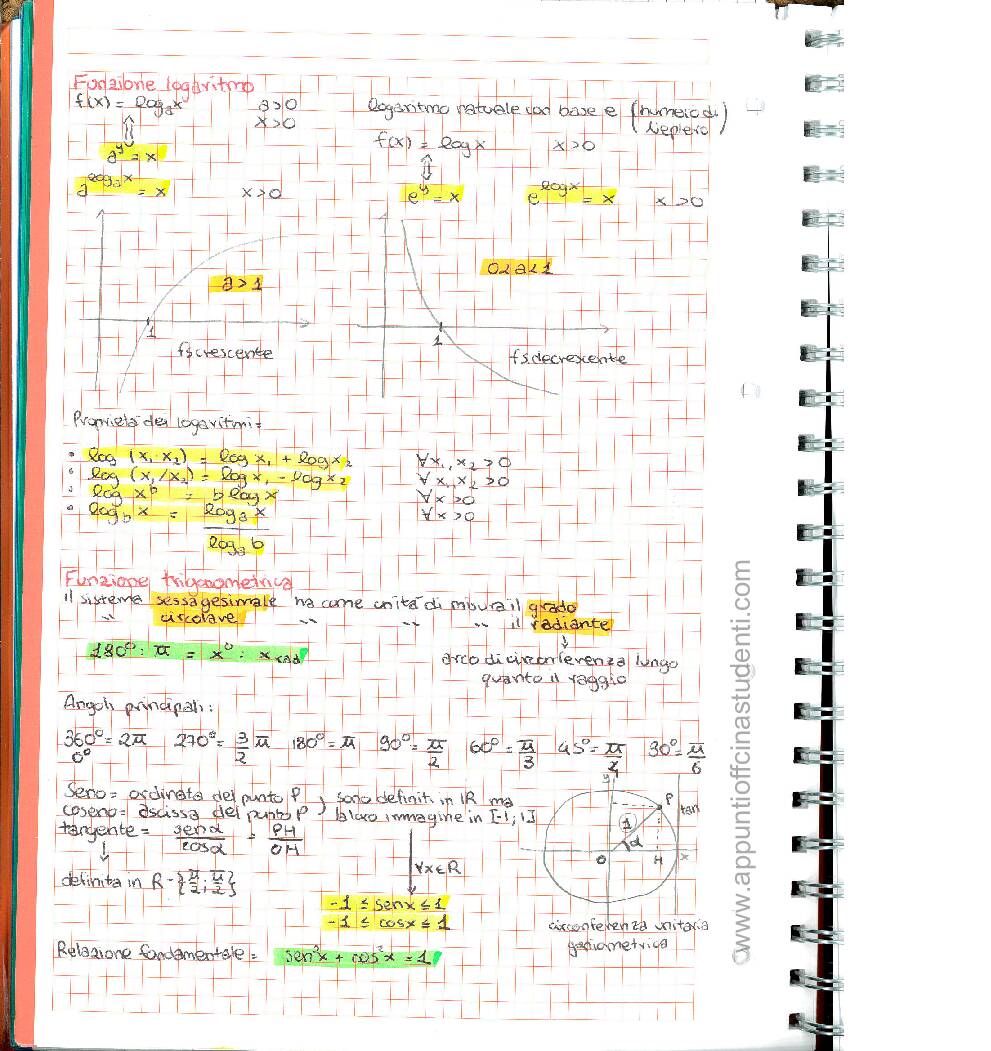 Funzione logaritmo
f(x) = logₐx a>0
x>0
⇕
aʸ = x
a^(logₐx) = x x>0
logaritmo natuale con base e (numero di Nepiero)
f(x) = logx x>0
⇕
eʸ = x e^(logx) = x x>0
a>1
1
fs.crescente
0<a<1
1
fs.decrescente
Proprietà dei logaritmi:
• log (x₁·x₂) = log x₁ + log x₂ ∀x₁,x₂>0
• log (x₁/x₂) = log x₁ - log x₂ ∀x₁,x₂>0
• log xᵇ = b log x ∀x>0
• log_b x = logₐ x / logₐ b ∀x>0
Funzione trigonometrica
il sistema sessagesimale ha come unità di misura il grado
" circolare " " " il radiante
↓
180° : π = x° : x rad
arco di circonferenza lungo
quanto il raggio
Angoli principali:
360° = 2π 270° = 3/2 π 180° = π 90° = π/2 60° = π/3 45° = π/4 30° = π/6
0°
Seno = ordinata del punto P } sono definiti in ℝ ma
coseno = ascissa del punto P } la loro immagine in [-1;1]
tangente = senα/cosα = PH/OH
↓
definita in R - {π/2; π/2}
∀x∈R
-1 ≤ senx ≤ 1
-1 ≤ cosx ≤ 1
y
P
tan
1
α
O H x
circonferenza unitaria
goniometrica
Relazione fondamentale = sen²x + cos²x = 1
©www.appuntiofficinastudenti.com